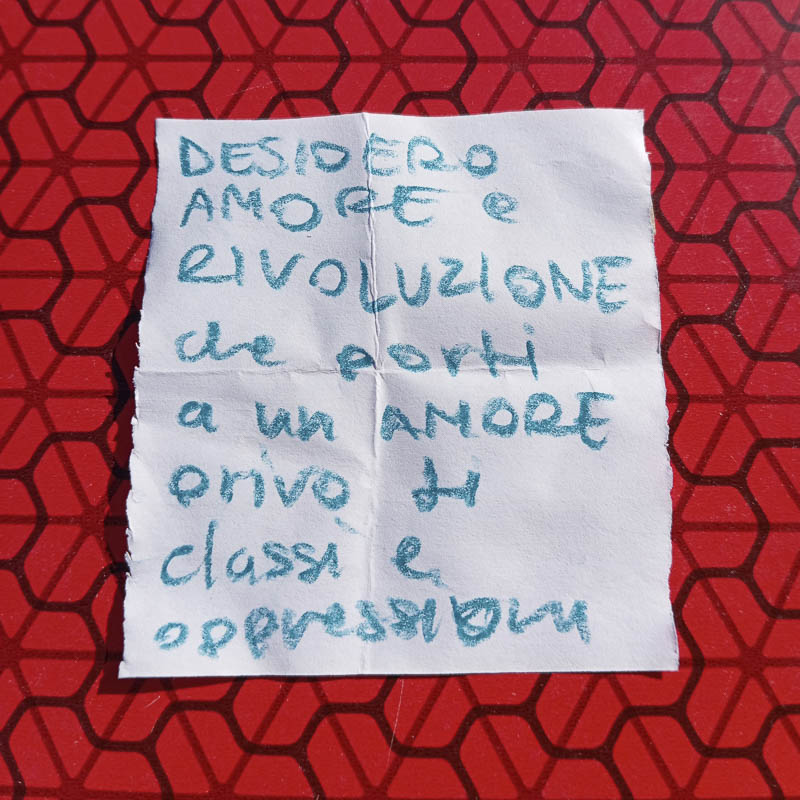 DESIDERO
AMORE e
RIVOLUZIONE
che porti
a un AMORE
privo di
classi e
oppressioni